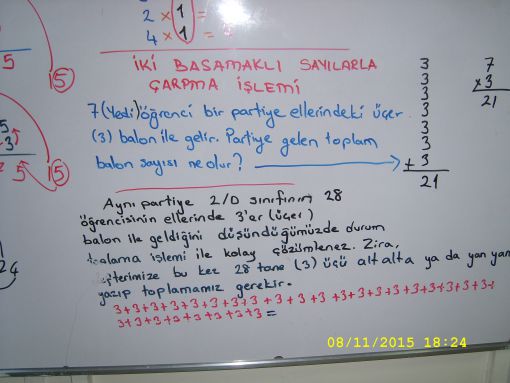 2 × 1 =
4 × 1 =
5
15
İKİ BASAMAKLI SAYILARLA
ÇARPMA İŞLEMİ
7 (Yedi) öğrenci bir partiye ellerindeki üçer
(3) balon ile gelir. Partiye gelen toplam
balon sayısı ne olur?
3
3
3
3
3
3
+ 3
21
7
×3
21
5
15
Aynı partiye 2/D sınıfının 28
öğrencisinin ellerinde 3'er (üçer)
balon ile geldiğini düşündüğümüzde durum
işlemi ile kolay çözümlenez. Zira,
bu kez 28 tane (3) üçü alt alta ya da yan yan
yazıp toplamamız gerekir.
3+3+3+3+3+3+3+3+3+3+3+3+3+3+3+3+3+3+3+3+
3+3+3+3+3+3+3+3+3=
08/11/2015 18:24